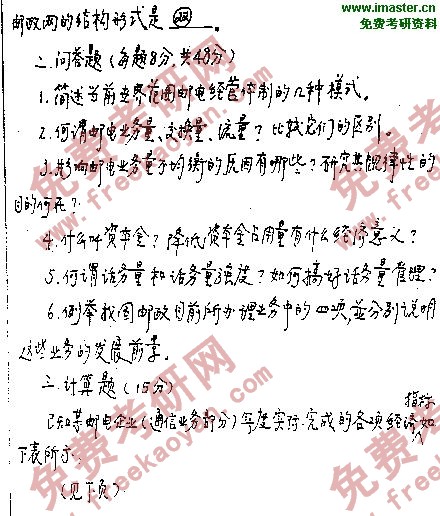 www.imaster.cn
免费考研资料
邮政网的结构形式是 ㉒ 。
二.问答题(每题8分,共48分)
1.简述当前世界范围邮电经营体制的几种模式。
2.何谓邮电业务量、交换量、流量?比较它们的区别。
3.影响邮电业务量不均衡的原因有哪些?研究其规律性的
目的何在?
4.什么叫资金?降低资金占用量有什么经济意义?
5.何谓话务量和话务量强度?如何搞好话务量管理?
6.例举我国邮政目前所办理业务中的四项,并分别说明
这些业务的发展前景。
三.计算题(15分)
指标
已知某邮电企业(通信业务部分)年度实际完成的各项经济如
下表所示.
(见下页)
免费考研网
www.freekaoyan.com